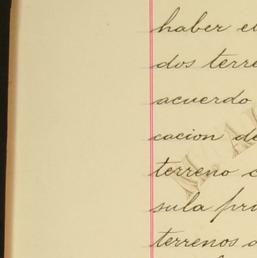 haber e
dos terre
acuerdo
cacion de
terreno c
sula pri
terrenos